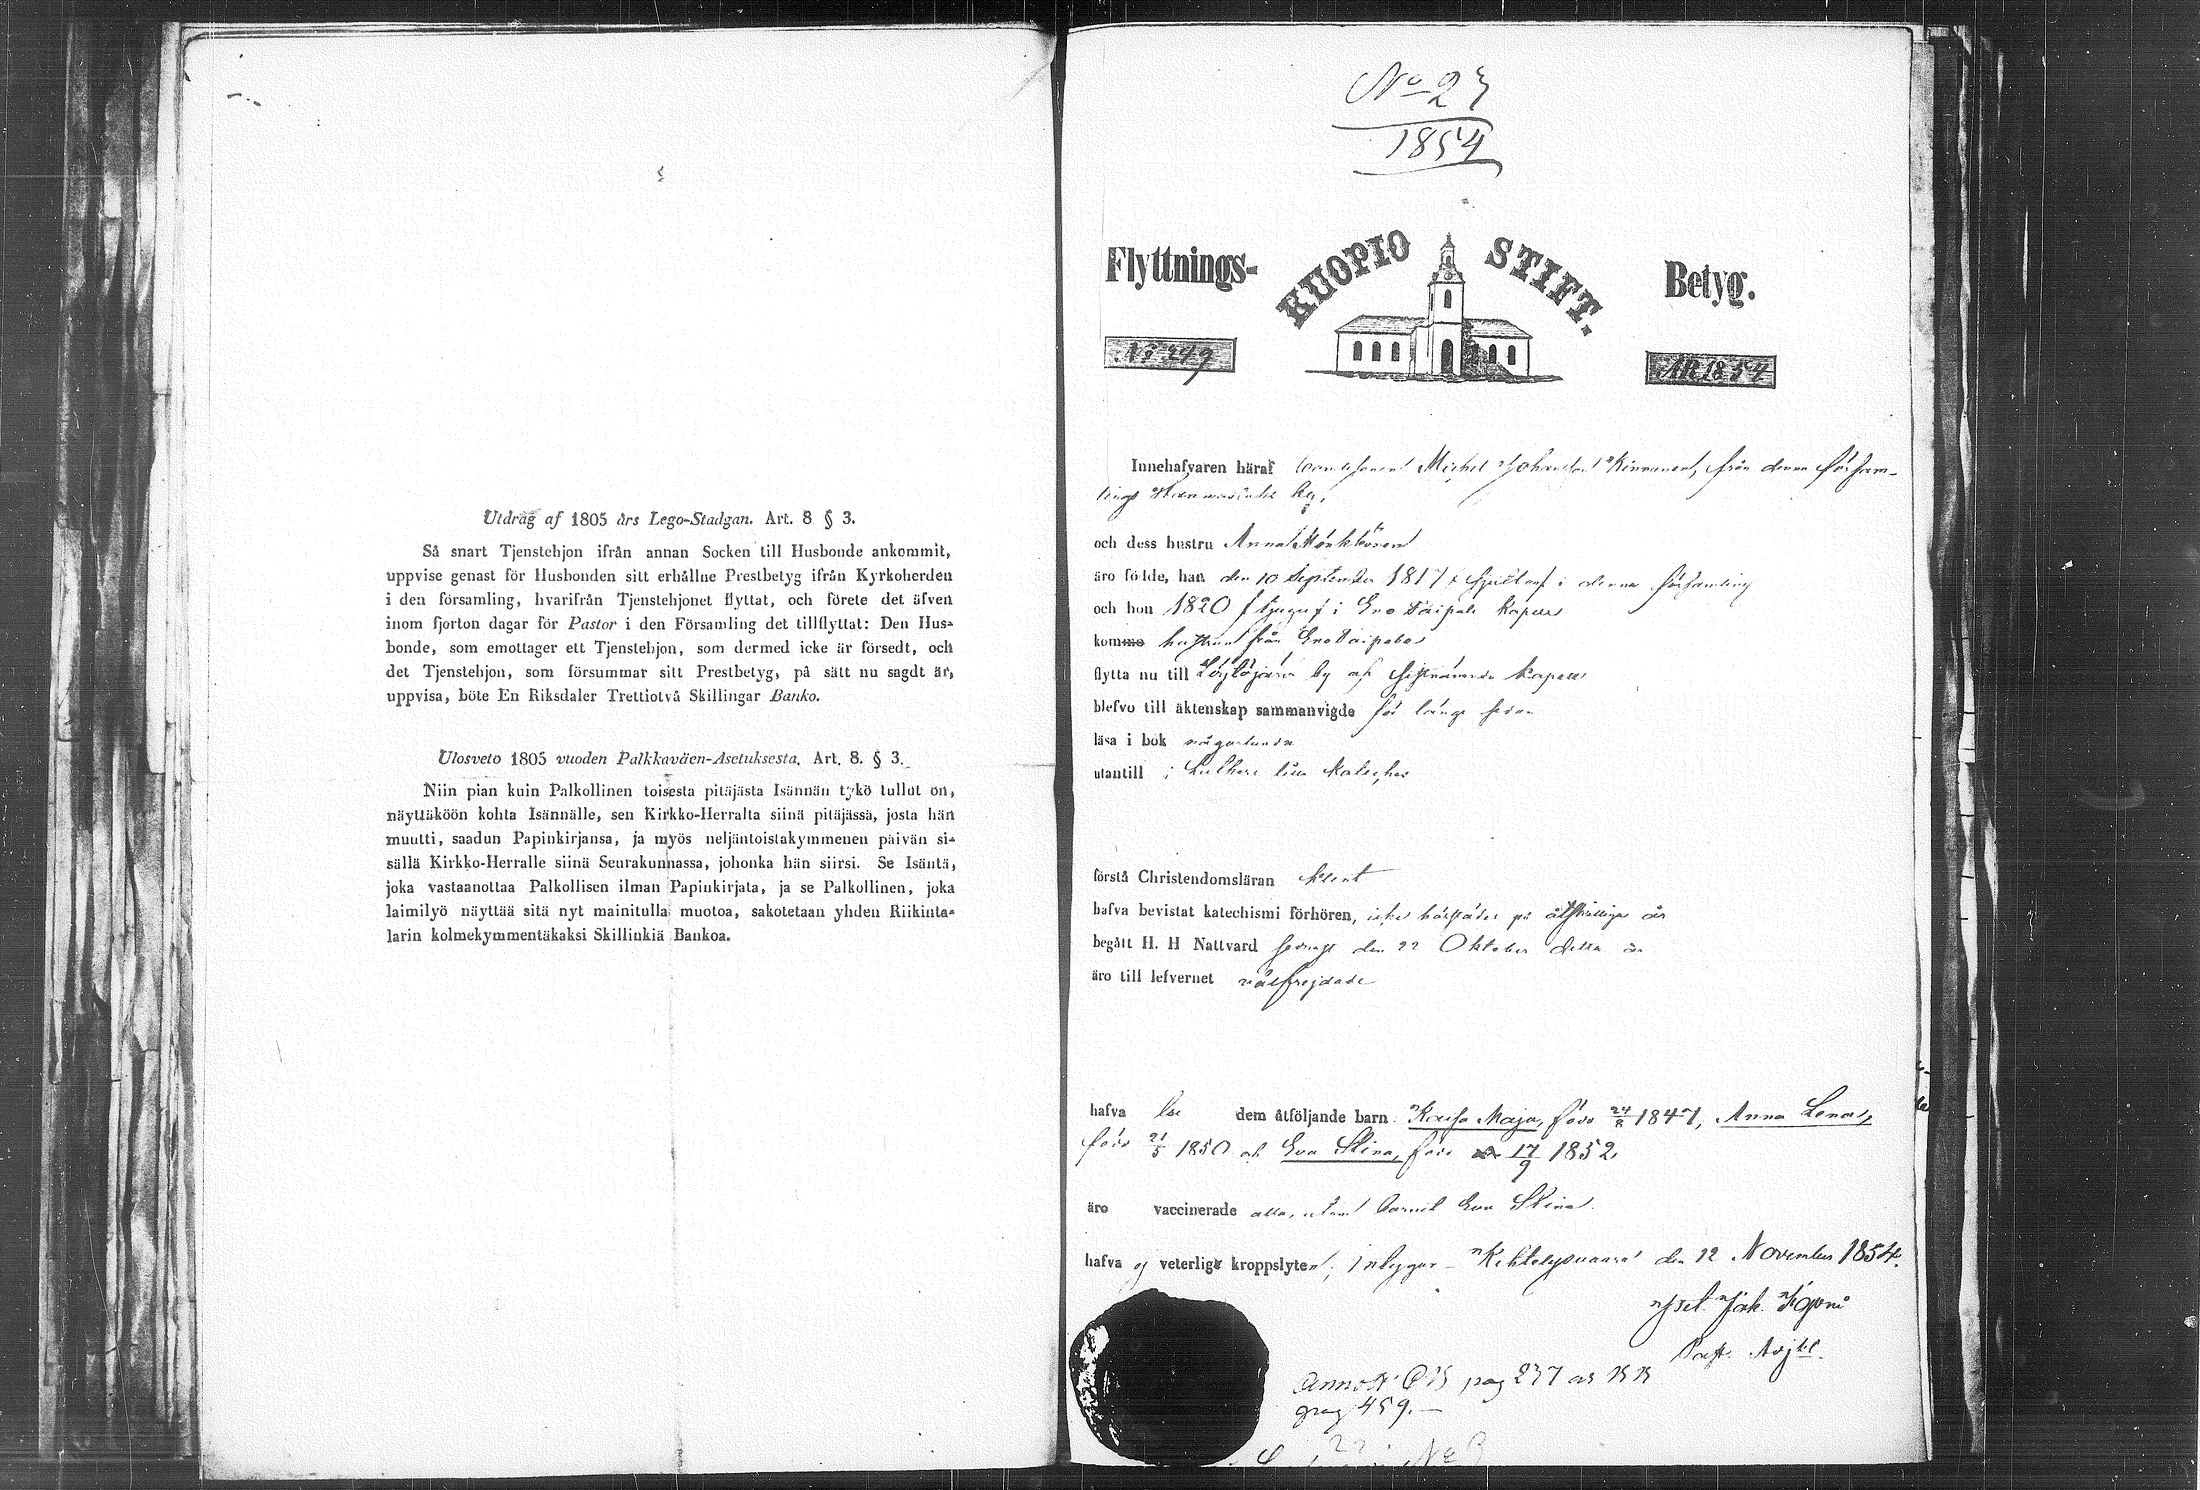 Utdrag af 1805 års Lego-Stadgan. Art. 8 § 3.
Så snart Tjenstehjon ifrån annan Socken till Husbonde ankommit,
uppvise genast för Husbonden sitt erhållne Prestbetyg ifrån Kyrkoherden
i den församling, hvarifrån Tjenstehjonet flyttat, och förete det äfven
inom fjorton dagar för Pastor i den Församling det tillflyttat: Den Hus-
bonde, som emottager ett Tjenstehjon, som dermed icke är försedt, och
det Tjenstehjon, som försummar sitt Prestbetyg, på sätt nu sagdt är,
uppvisa, böte En Riksdaler Trettiotvå Skillingar Banko.
Ulosveto 1805 vuoden Palkkaväen-Asetuksesta. Art. 8. § 3.
Niin pian kuin Palkollinen toisesta pitäjästä Isännän tykö tullut on,
näyttäköön kohta Isännälle, sen Kirkko-Herralta siinä pitäjässä, josta hän
muutti, saadun Papinkirjansa, ja myös neljäntoistakymmenen päivän si-
sällä Kirkko-Herralle siinä Seurakunnassa, johonka hän siirsi. Se Isäntä,
joka vastaanottaa Palkollisen ilman Papinkirjata, ja se Palkollinen, joka
laimilyö näyttää sitä nyt mainitulla muotoa, sakotetaan yhden Riikinta-
larin kolmekymmentäkaksi Skillinkiä Bankoa.
No 27
1854
Flyttnings- KUOPIO STIFT. Betyg.
No 249
ÅR 1854
Innehafvaren häraf Michel Johansson Kinnunen, från denna försam-
lings by,
och dess hustru Anna Mönkkönen
äro födde, han den 10 September 1817 i denna församling
och hon 1820 i Eno Kapell
komme från
flytta nu till by af Kapell
blefvo till äktenskap sammanvigde för länge sedan
läsa i bok någorlunda
utantill Lutheri lilla Kateches
förstå Christendomsläran klent
hafva bevistat katechismi förhören, på åtskilliga år
begått H. H Nattvard senast den 22 Oktober detta år
äro till lefvernet välfrejdade
hafva dem åtföljande barn: Kaisa Maja, född 24/8 1847, Anna Lena,
född 21/5 1850 och Eva Stina, född 17/9 1852
äro vaccinerade alla, utom barnet Eva Stina.
hafva ej veterligt kroppslyten; intygar Kihtelysvaara den 12 November 1854.
Jak.
Past.
pag 237
pag 459.